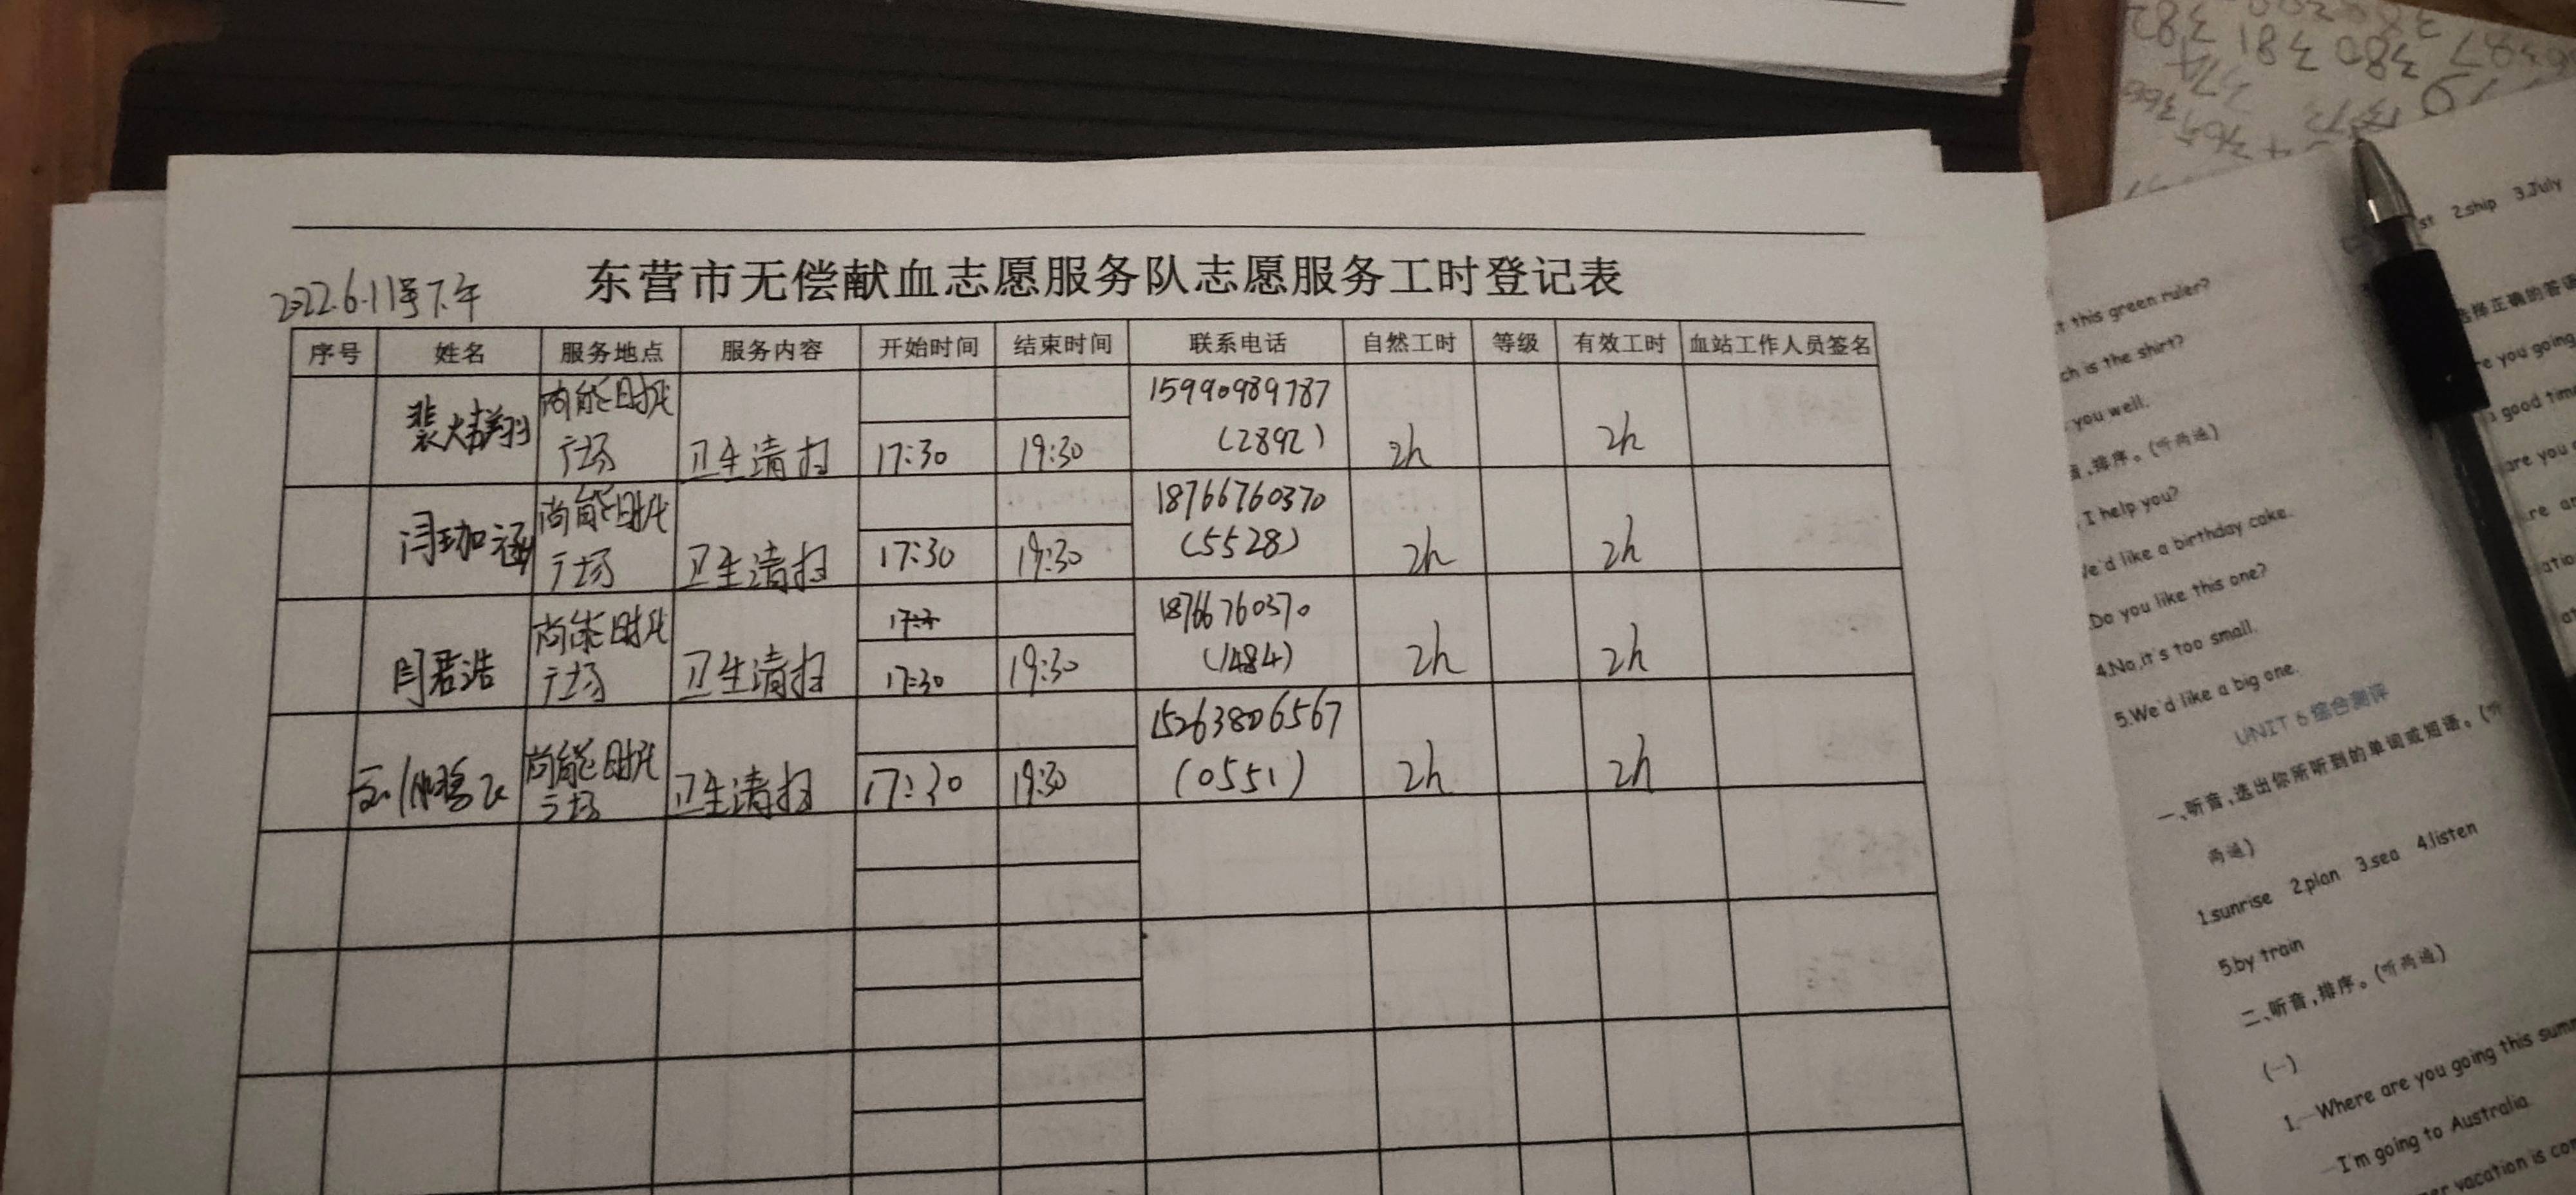 东营市无偿献血志愿服务队志愿服务工时登记表
2022.6.11号下午
序号 姓名 服务地点 服务内容 开始时间 结束时间 联系电话 自然工时 等级 有效工时 血站工作人员签名
尚能时代 15990989787
广场 卫生清扫 17:30 19:30 (2892) 2h 2h
闫珈涵 尚能时代 18766760370
广场 卫生清扫 17:30 19:30 (5528) 2h 2h
尚能时代 18766760370
闫君浩 广场 卫生清扫 17:30 19:30 (1484) 2h 2h
尚能时代 15263806567
广场 卫生清扫 17:30 19:30 (0551) 2h 2h
380 381 382
374
st 2.ship 3.July
选择正确的答语
t this green ruler?
re you going
ch is the shirt?
good time
you well.
,排序。(听两遍)
are you
I help you?
re
We'd like a birthday cake.
Do you like this one?
4.No,it's too small.
5.We'd like a big one.
UNIT 6 综合测评
一、听音,选出你所听到的单词或短语。(听
两遍)
1.sunrise 2.plan 3.sea 4.listen
5.by train
二、听音,排序。(听两遍)
(一)
1.—Where are you going this summ
—I'm going to Australia
er vacation is co